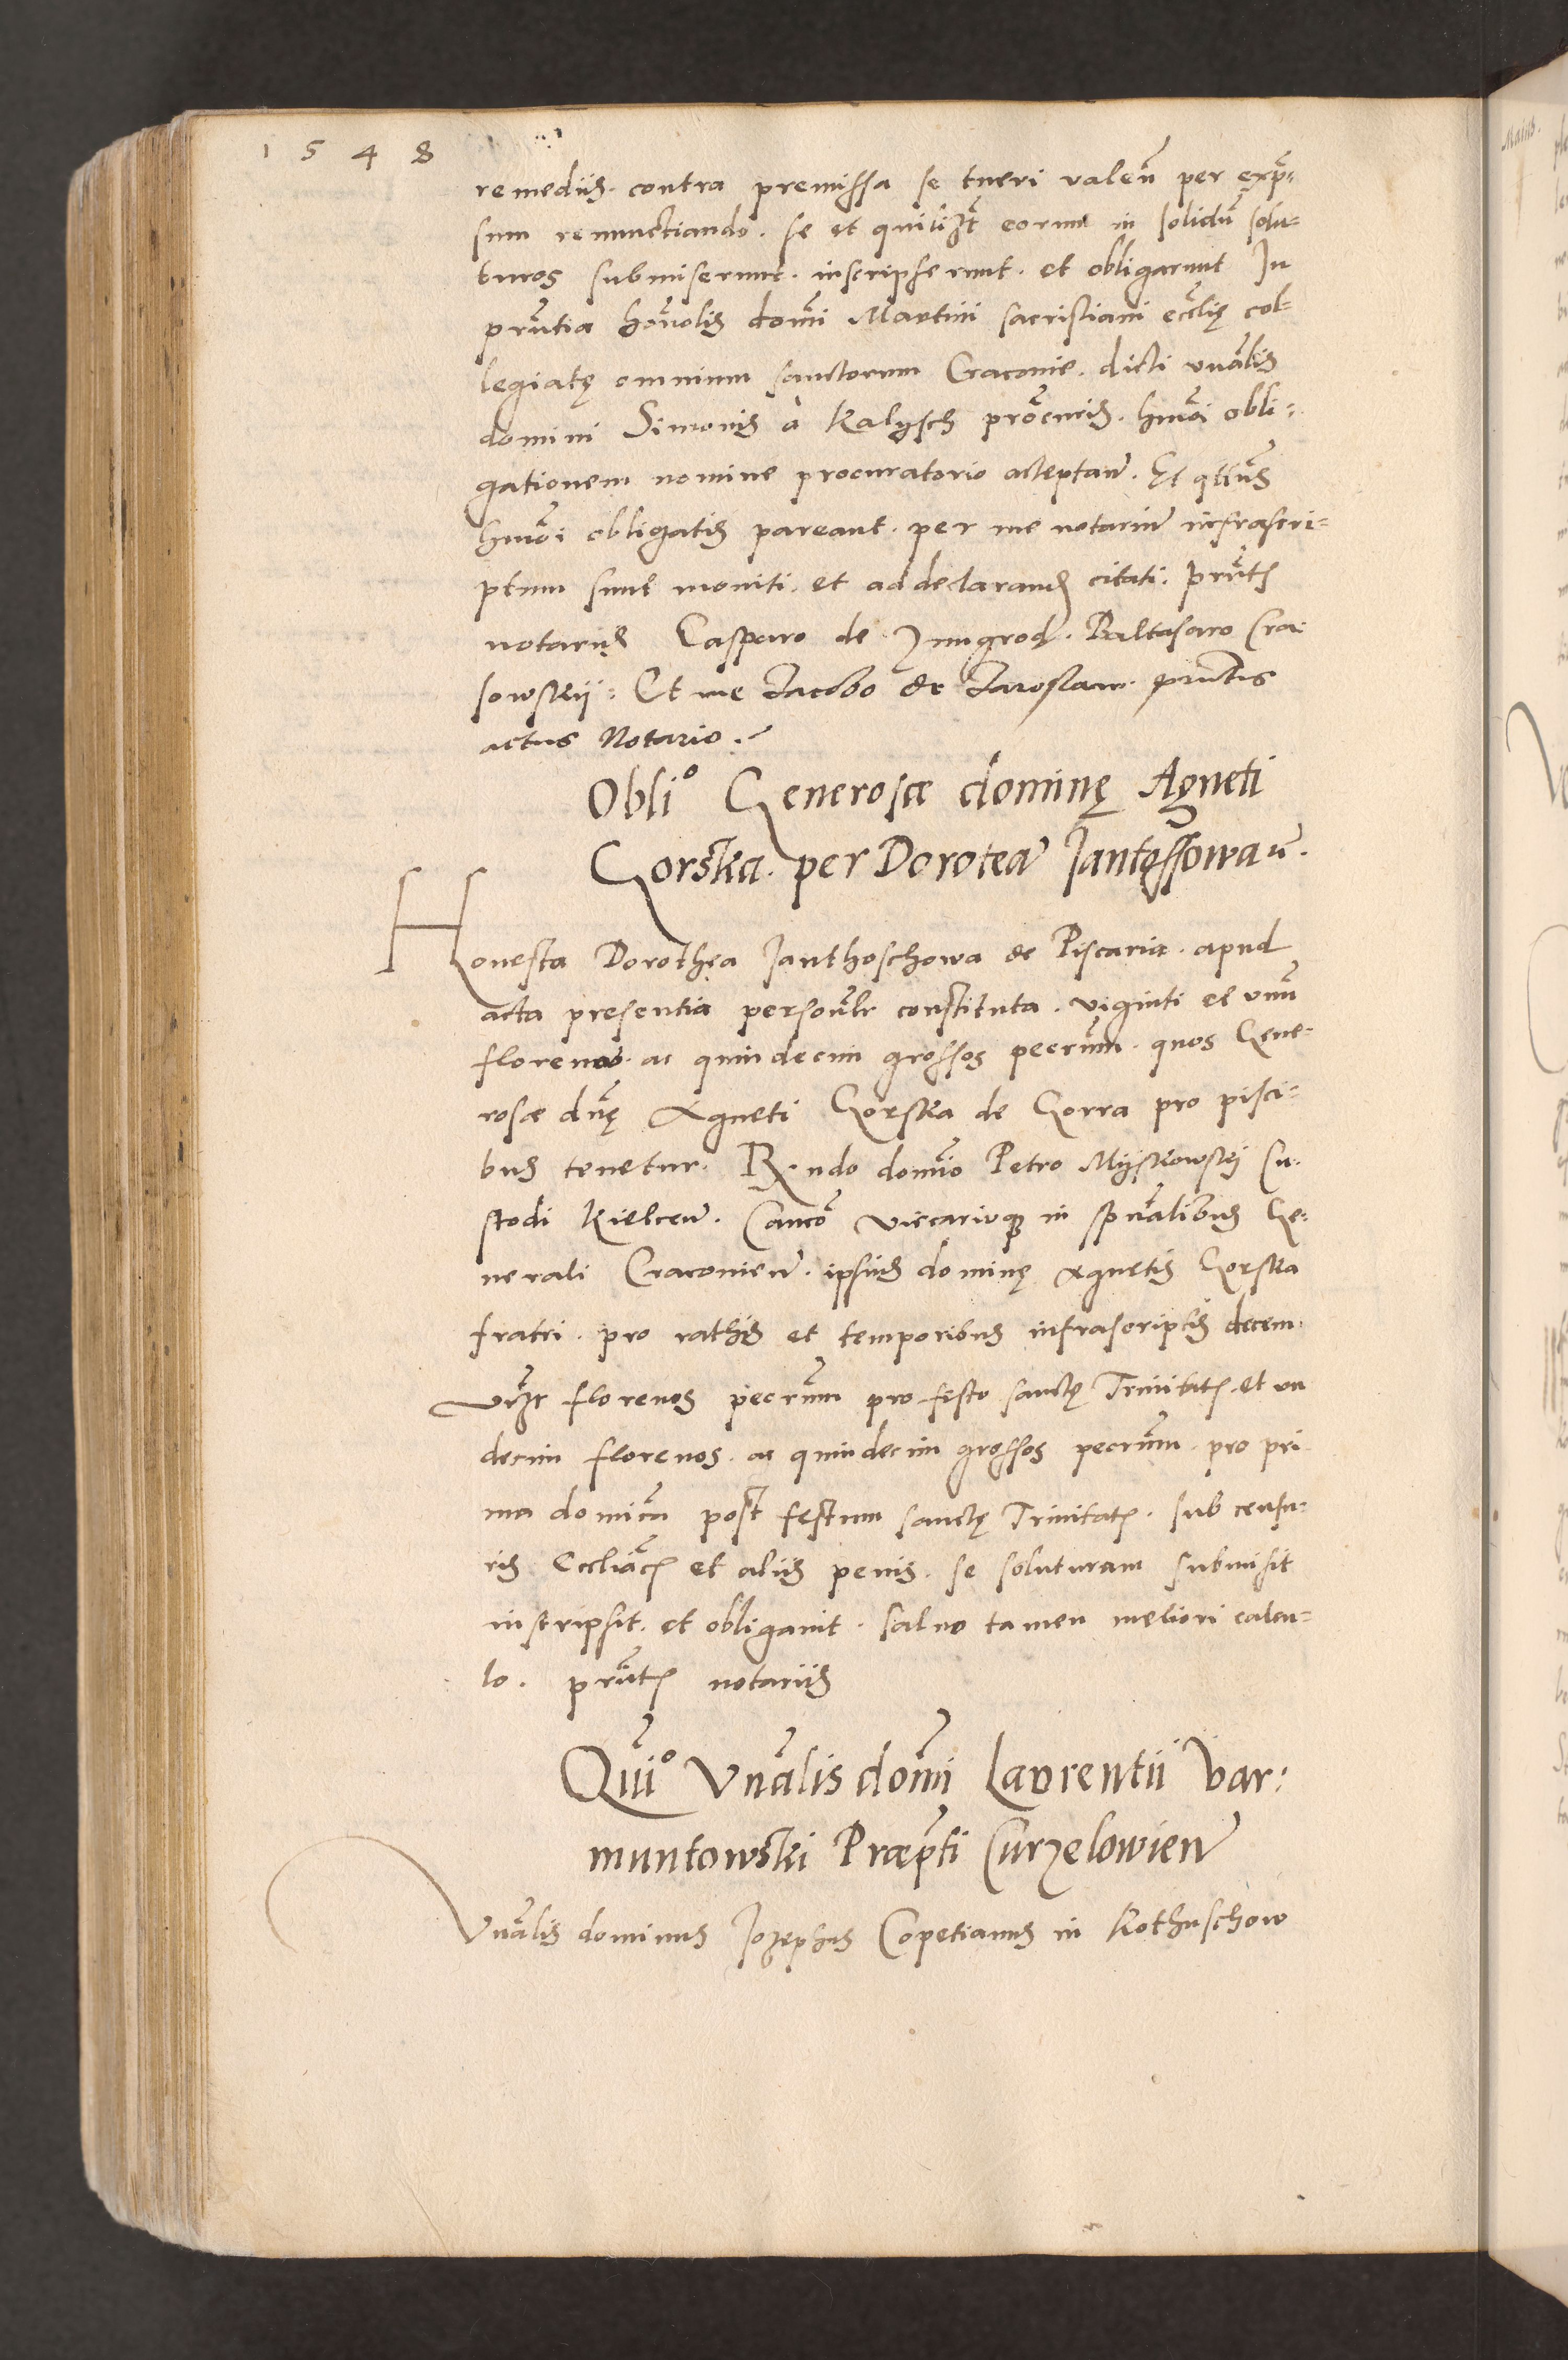 1 5 4 8
remediis. contra premissa se tueri valeñ per exp̃-
sum renunctiando. se et quilibt̃ eorum in solidũ solu-
turos submiserunt. inscripserunt. et obligarunt In
prñtia honolis domĩ Martini sacristiani ecclię col-
legiatę omnium sanctorum Cracovie. dicti vnalis
domini Simonis à Kalysch procuris. hmoi obli-
gationem nomine procuratorio acceptañ. Et qtus
hmoi obligatis pareant. per me notariũ infrascri-
ptum sunt moniti. et ad declarand citati. prñtes
notarus Casparo de Zmigrod. Baltasaro Cra-
sowskij: Et me Iacobo de Iaroslaw. prñtis
actus Notario.
Oblio Generosæ dominę Agneti
Gorska. per Doroteã Iantossowa
Honesta Dorothea Ianthoschowa de Piscaria. apud
acta presentia personalr constituta. viginti et vnũ
florenos. ac quindecim grossos pecũm. quos Gene-
rosæ dnę Agneti Gorska de Gorra pro pisci-
bus tenetur. R.ndo domio Petro Myskowskij Cu-
stodi Kielceñ. Canco Viccarioque in spualibus Ge-
nerali Cracovieñ. ipsius dominę Agnetis Gorska
fratri. pro rathis et temporibus infrascriptis decem.
vizt florenos pecũm pro festo sanctę Trinitatis. et un
decim florenos. ac quindecim grossos pecũm. pro pri
ma domica post festum sanctę Trinitatis. sub censu-
ris Eccliacis et aliis penis. se soluturam submisit
inscripsit. et obligauit. saluo tamen meliori calcu-
lo. prñtes notariis
Quio Vnalis domĩ Laurentii Var-
muntowski Præpti Curzelowieñ
Vnalis dominus Iozephus Copetianus in Kothuschow
Maius.